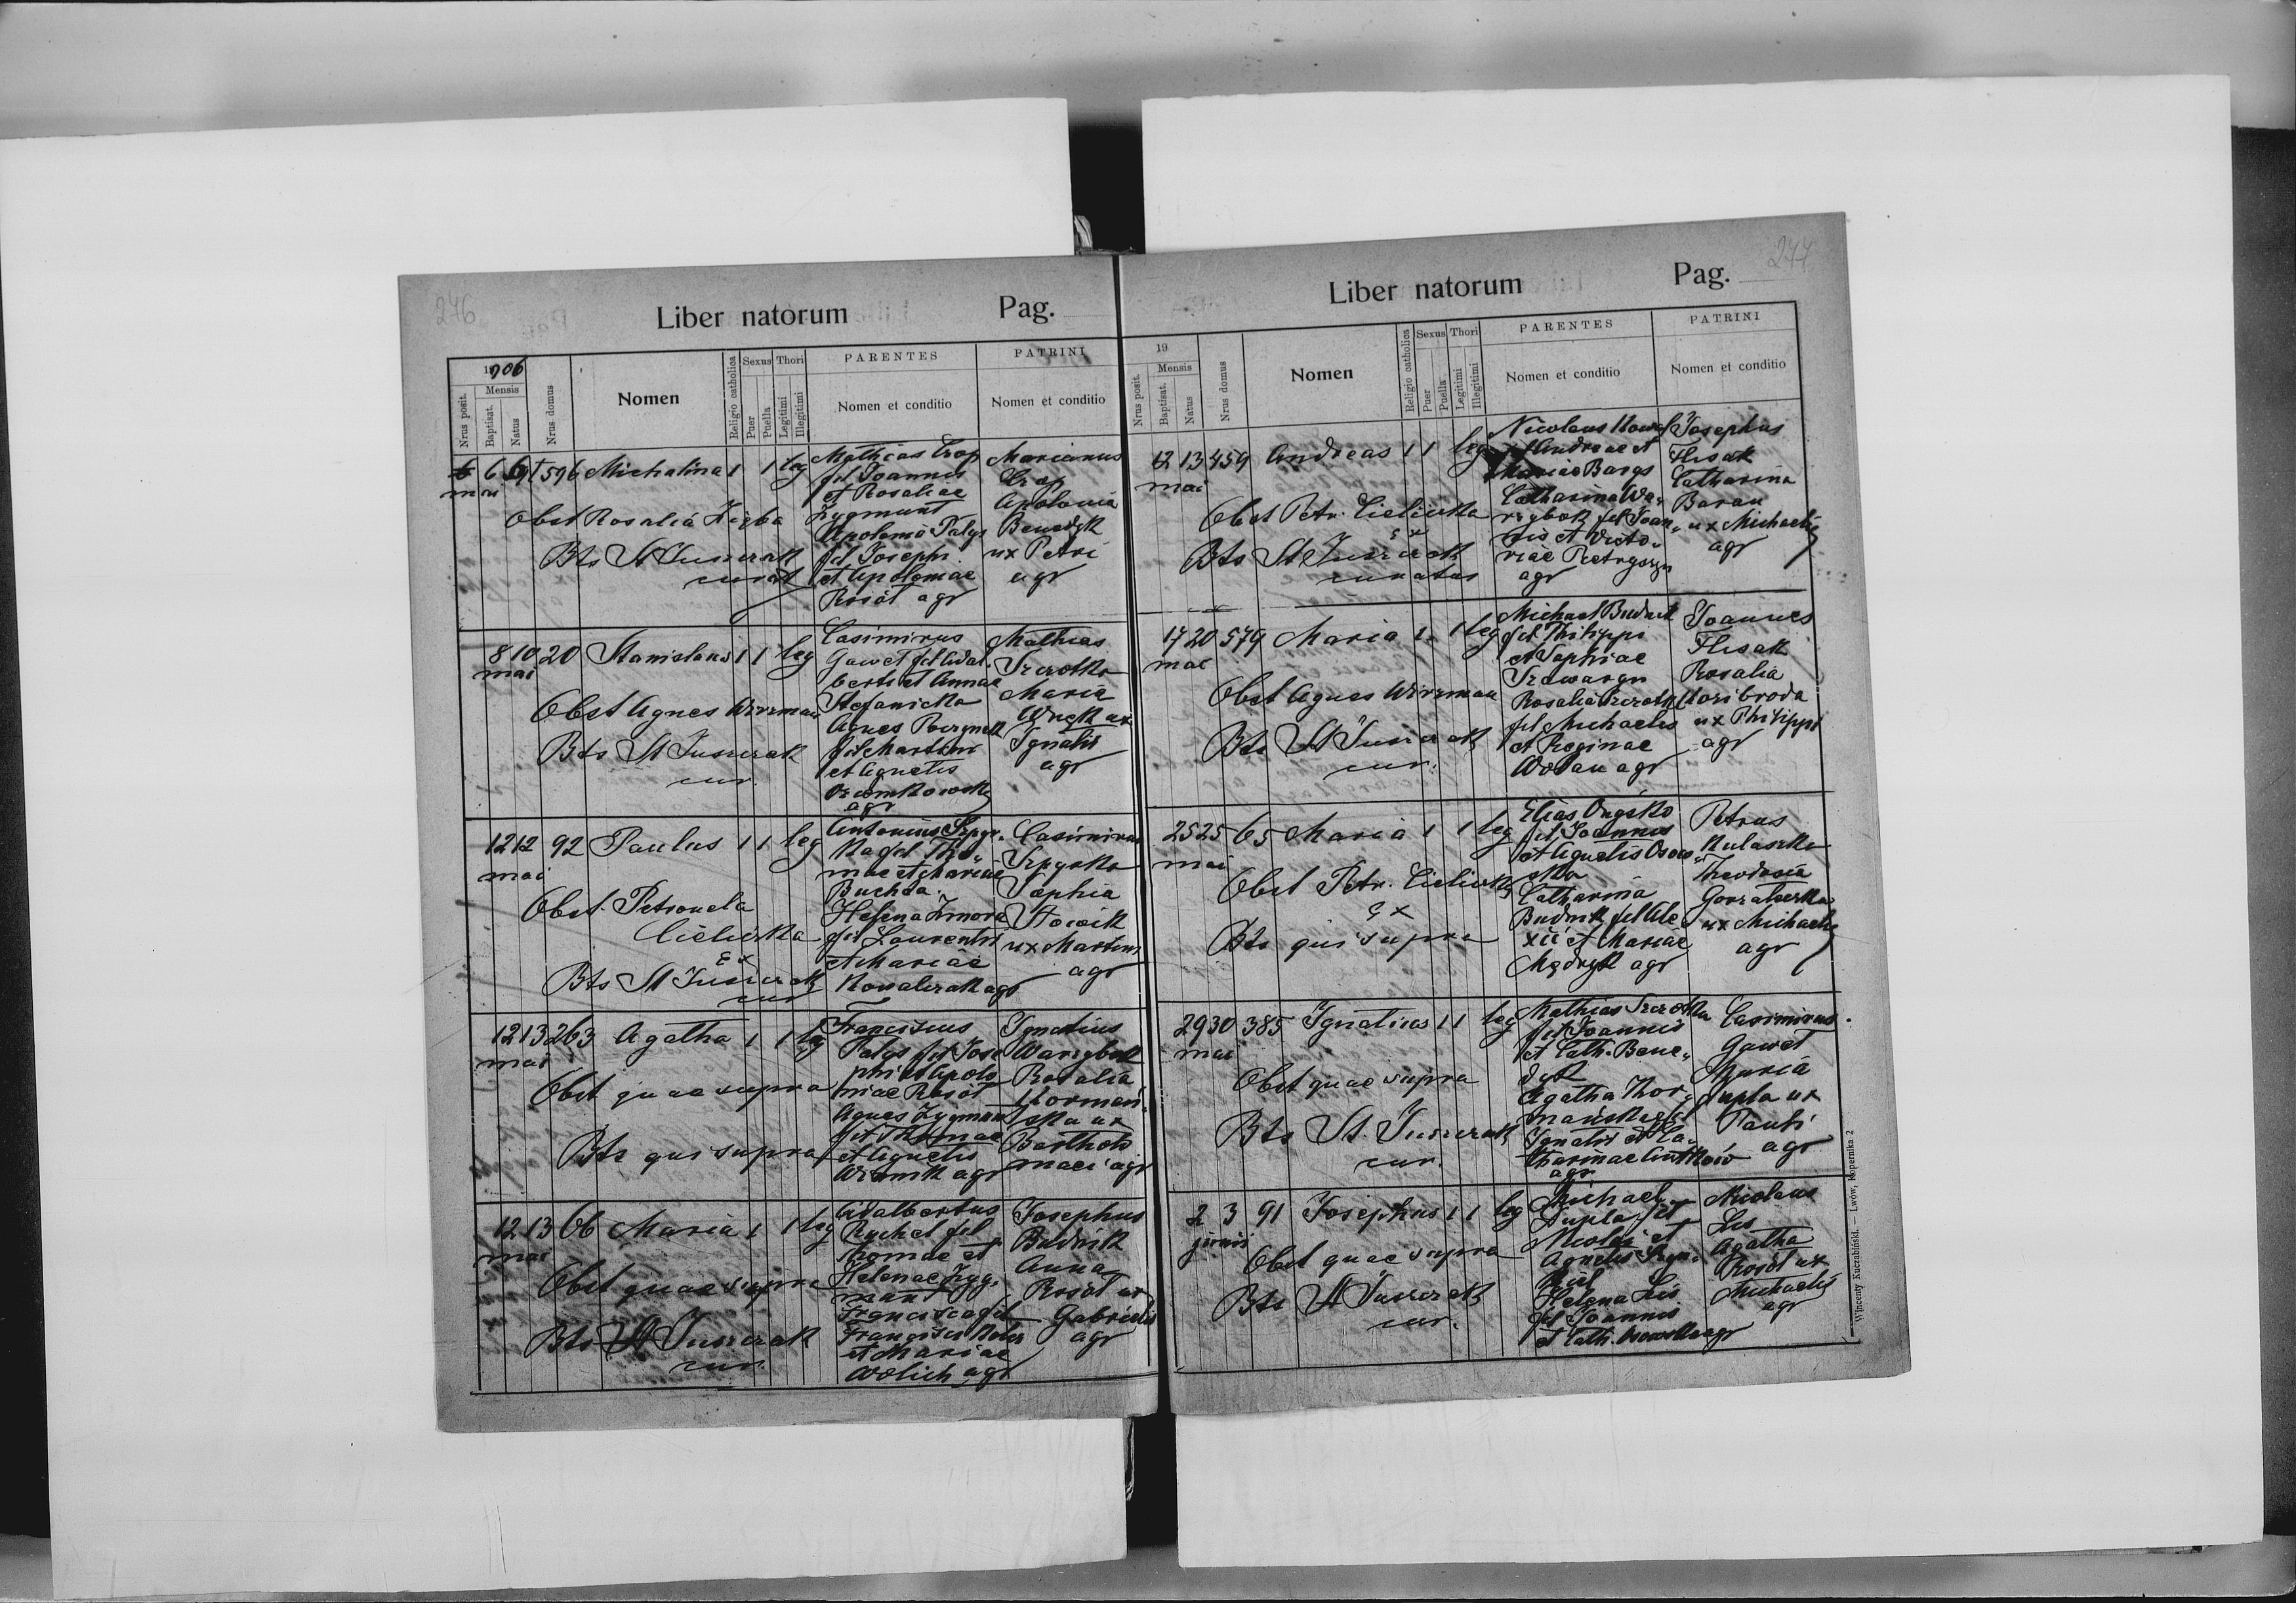 246
Liber natorum Pag.
1906
Nrus posit.
Mensis
Baptisat.
Natus
Nrus domus
Nomen
Religio catholica
Sexus
Puer
Puella
Thori
Legitimi
Illegitimi
PARENTES
Nomen et conditio
PATRINI
Nomen et conditio
6 6 596 Michalina 1 1 leg
mai
Obst Rosalia Zięba
Bts St Juszczak
curat
Mathias Crap
fil Joannis
et Rosaliae
Zygmunt
Apolonia Palys
fil Josephi
et Apoloniae
Rosół agr
Marianus
Crap
Apolonia
Benedyk
ux Petri
agr
8 10 20 Stanislaus 1 1 leg
mai
Obst Agnes Wirzman
Bts St Juszczak
cur.
Casimirus
Gaweł fil Adal
berti et Annae
Stefanicka
Agnes
fil Martini
et Agnetis
agr
Mathias
Szczotka
Maria
ux
Ignatii
agr
12 12 92 Paulus 1 1 leg
mai
Obst. Petronela
Cielicka
Ex
Bts St Juszczak
cur
Antonius Szpyr-
ka fil Tho-
mae et Mariae
Buchta
Helena Zmora
fil Laurentii
et Mariae
Kowalczak agr
Casimirus
Szpyrka
Sophia
Słowik
ux Martini
agr
12 13 263 Agatha 1 1 leg
mai
Obst quae supra
Bts qui supra
Franciscus
Palys fil Jose
phi et Apolo
niae Rosół
Agnes Zygmunt
fil Thomae
et Agnetis
agr
Ignatius
Warzybok
Rosalia
ska ux
Bartholo
maei agr
12 13 66 Maria 1 1 leg
mai
Obst quae supra
Bts St Juszczak
cur.
Adalbertus
Rychel fil
Thomae et
Helenae Zyg-
munt
Francisca fil
Francisci
et Mariae
Wolich agr
Josephus
Budnik
Anna
Rosół ux
Gabrielis
agr
247
Liber natorum Pag.
19
Nrus posit.
Mensis
Baptisat.
Natus
Nrus domus
Nomen
Religio catholica
Sexus
Puer
Puella
Thori
Legitimi
Illegitimi
PARENTES
Nomen et conditio
PATRINI
Nomen et conditio
12 13 459 Andreas 1 1 leg
mai
Obst Petr. Cielicka
Ex
Bts St Juszczak
curatus
Nicolaus
fil Andreae et
Mariae Bargs
Catharina Wa-
rzybok fil Joan-
nis et Victo-
riae
agr
Josephus
Flisak
Catharina
Baran
ux Michaelis
agr
17 20 579 Maria 1 1 leg
mai
Obst Agnes Wirzman
Bts St Juszczak
cur.
Michael Budnik
fil Philippi
et Sophiae
Rosalia Szczotka
fil Michaelis
et Reginae
Wolan agr
Joannes
Flisak
Rosalia
ux Philippi
agr
25 25 65 Maria 1 1 leg
mai
Obst Petr. Cielicka
Ex
Bts qui supra
Elias
fil Joannis
et Agnetis Osow-
ska
Catharina
Budnik fil Ale
xii et Mariae
Mędryk agr
Petrus
Kulaszka
Theodosia
ux Michaelis
agr
29 30 385 Ignatius 1 1 leg
mai
Obst quae supra
Bts St. Juszczak
cur.
Mathias Szczotka
fil Joannis
et Cath. Bene-
dyk
Agatha Thor-
mańska fil
Ignatii et Ca-
tharinae
agr
Casimirus
Gaweł
Maria
Dupla ux
Pauli
agr
2 3 91 Josephus 1 1 leg
junii
Obst quae supra
Bts St Juszczak
cur.
Michael
Dupla fil
Nicolai et
Agnetis
Helena Lis
fil Joannis
et Cath. Osowska agr
Nicolaus
Lis
Agatha
Rosół ux
Michaelis
agr
Wincenty Kuczabiński. — Lwów, Kopernika 2